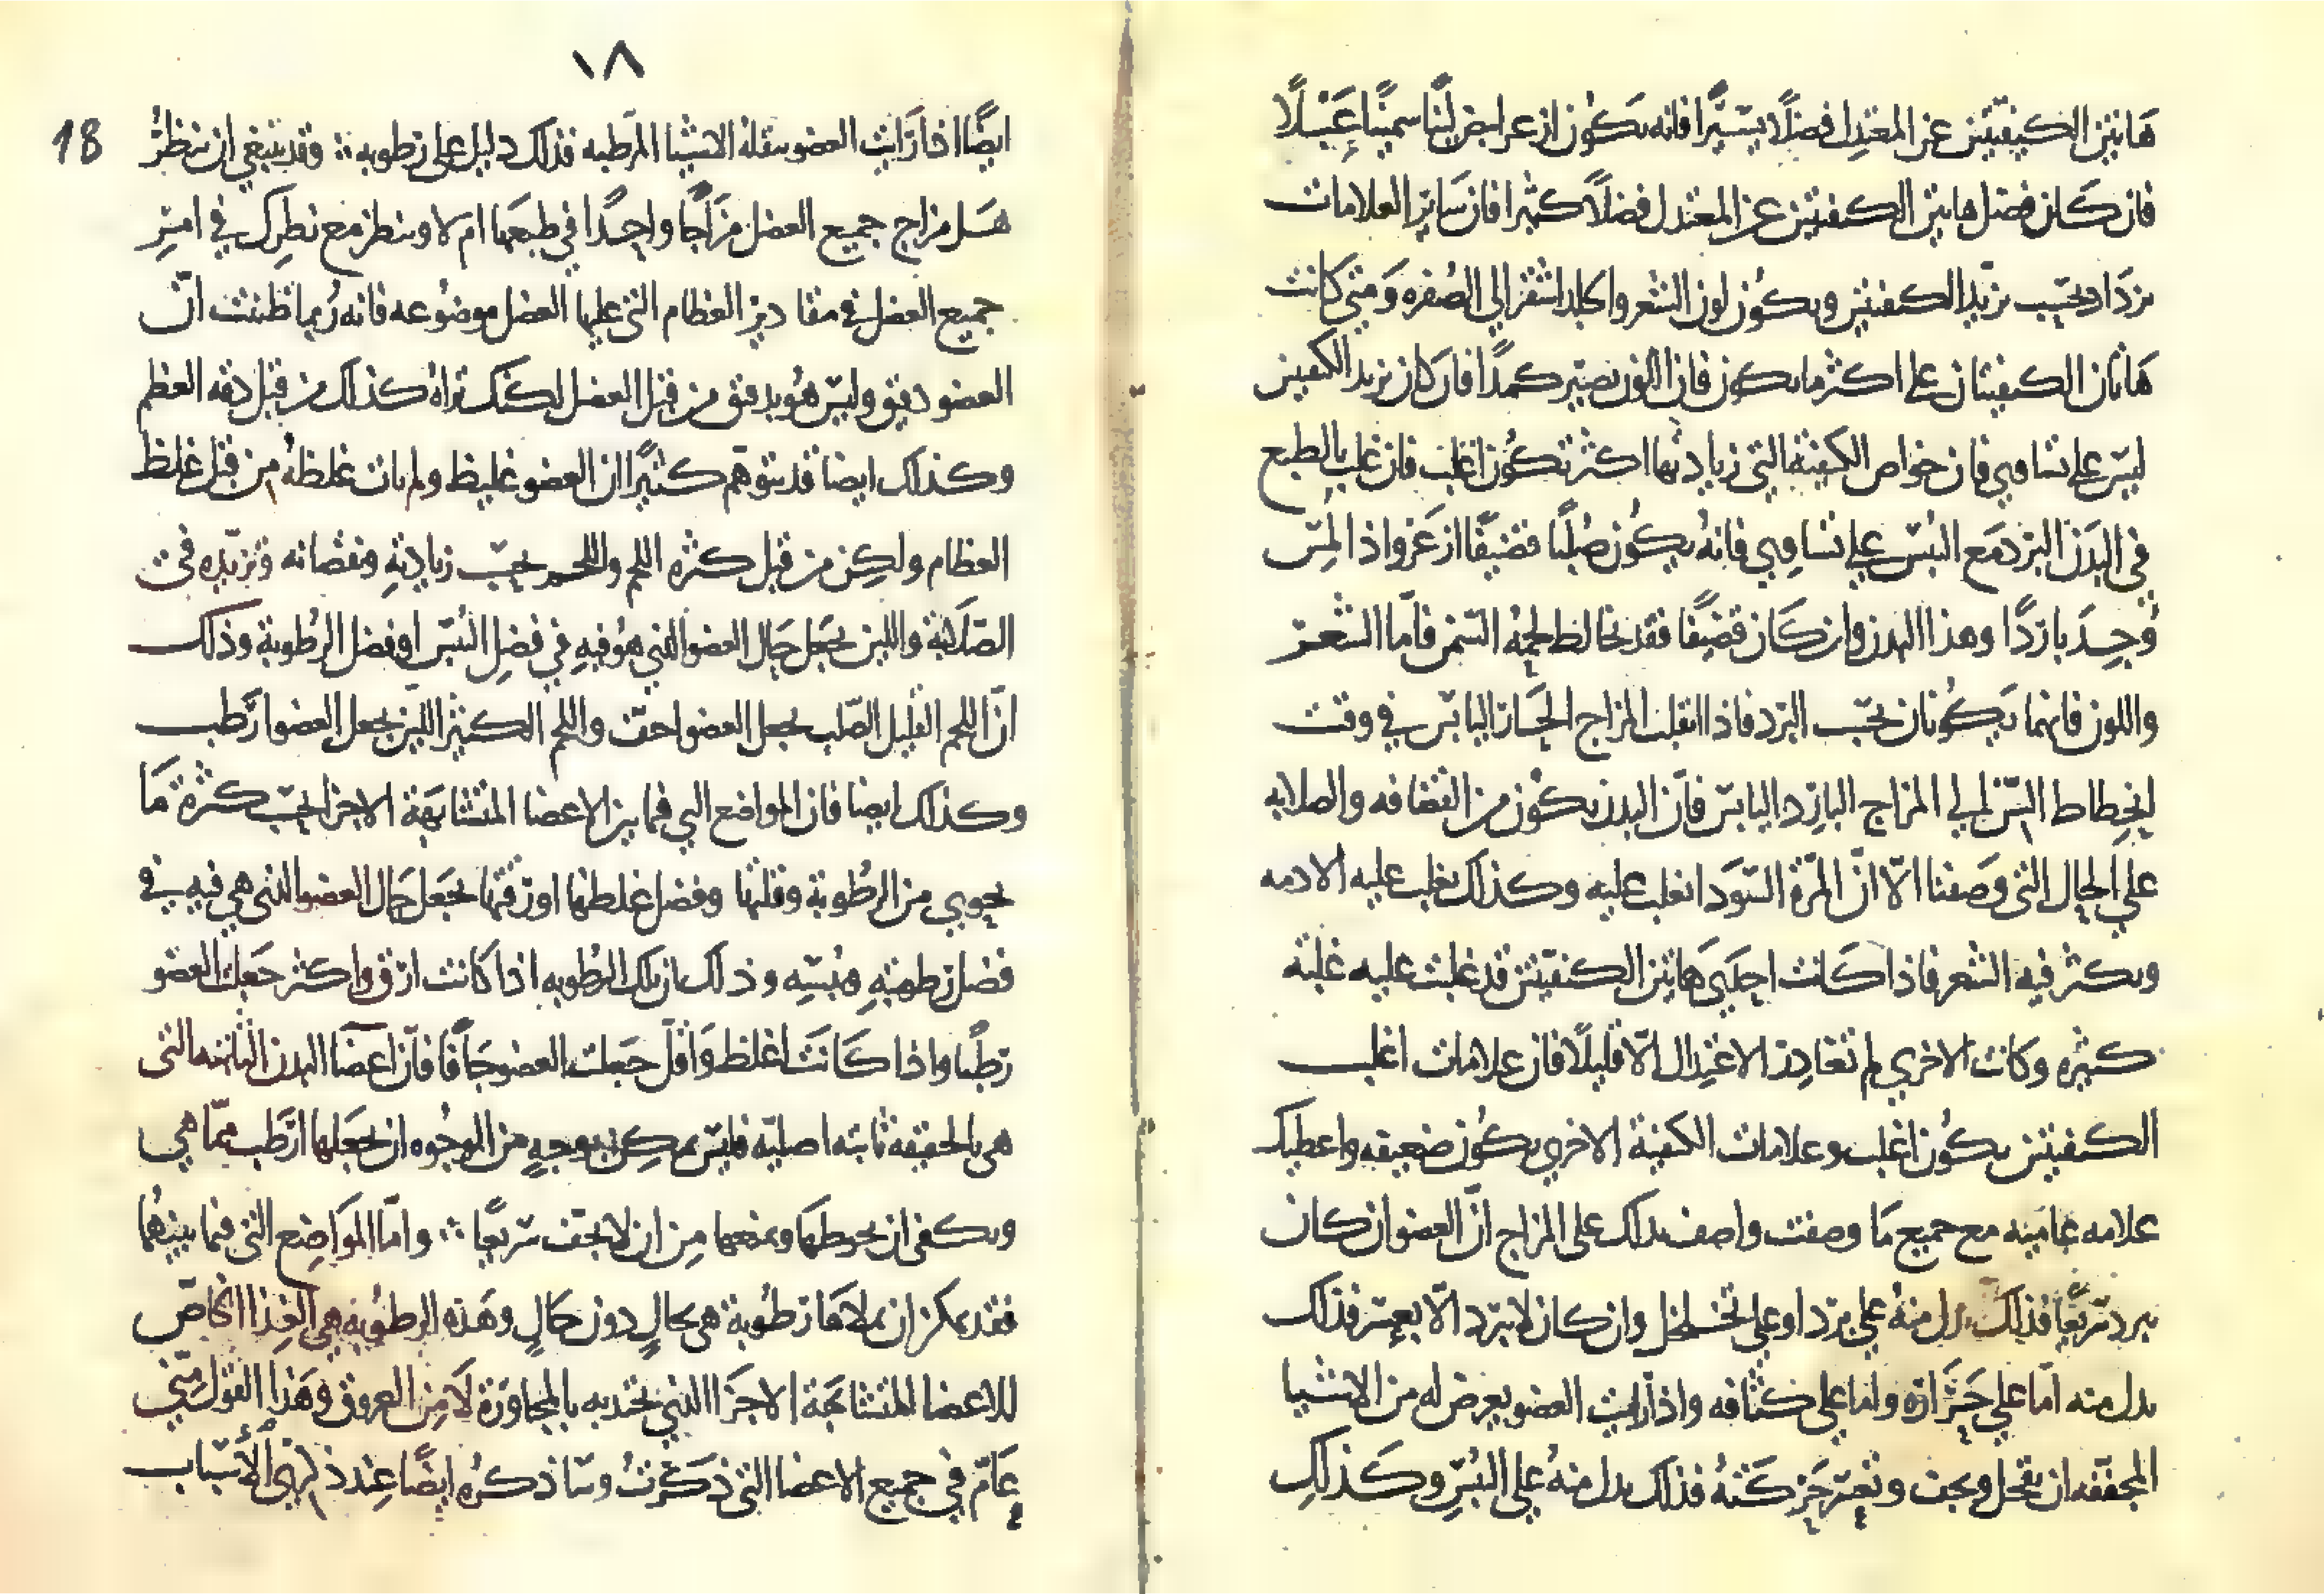 هاتين الكيفيتين عن المعتدل فضلًا يسيرًا فانه يكون ازعر ابيض لينا سمينا عبلًا
فان كان فضل هاتين الكيفيتين عن المعتدل فضلًا كثيرا فان ساير العلامات
تزداد بحسب تزيد الكيفيتين ويكون لون الشعر والجلد اشقر الى الصفره ومتى كانت
هاتان الكيفيتان على اكثر ما يكون فان اللون يصير كمدًا فان كان تزيد الكيفيتين
ليس على تساوي فان خواص الكيفية التي زيادتها اكثر تكون اغلب فان غلب بالطبع
في البدن البرد مع اليبس على تساوي فانه يكون صلبا قضيفًا ازعر واذا لمس
وجد باردًا وهذا البدن وان كان قضيفًا فقد يخالط لحمه السمن فاما الشعر
واللون فانهما يكونان بحسب البرد فاذا انقلب المزاج الحار اليابس في وقت
انحطاط السن الي المزاج البارد اليابس فان البدن يكون من القضافه والصلابه
علي الحال التي وصفنا الا انّ المرة السودا تغلب عليه وكذلك يغلب عليه الادمه
ويكثر فيه الشعر فاذا كانت احدي هاتين الكيفيتين قد غلبت عليه غلبة
كثيره وكانت الاخري لم تغادر الاعتدال الّا قليلًا فان علامات اغلب
الكيفيتين يكون اغلب وعلامات الكيفية الاخري يكون ضعيفه واعطيك
علامه عاميه مع جميع ما وصفت واصف بذلك على المزاج انّ العضو ان كان
يبرد سريعًا فذلك يدل منه علي برد او على تخلخل وان كان لا يبرد الّا بعسر فذلك
يدل منه امّا على حرارة واما على كثافه واذا رايت العضو يعرض له من الاشيا
المجففه ان يقحل ويجف وتعسر حركته فذلك يدل منه علي اليبس وكذلك
١٨
18
ايضًا اذا رايت العضو يثقله الاشيا المرطبه فذلك دليل على رطوبه ؞ وقد ينبغي ان ينظر
هل مزاج جميع العضل مزاجًا واحدًا في طبعها ام لا وينظر مع نظرك في امر
جميع العضل في مقادير العظام التي عليها العضل موضوعه فانه ربما ظننت انّ
العضو دقيق وليس هو بدقيق من قبل العضل لكنك تراه كذلك من قبل دقه العظم
وكذلك ايضا قد يتوهم كثيرًا ان العضو غليظ ولم يات غلظه من قبل غلظ
العظام ولكن من قبل كثره اللحم واللحم بحسب زيادته ونقصانه وتزيده في
الصلابة واللين يجعل حال العضو الذي هو فيه في فضل اليبس او فضل الرطوبة وذلك
انّ اللحم القليل الصلب يجعل العضو اجف واللحم الكثير اللين يجعل العضو ارطب
وكذلك ايضا فان المواضع التي فيما بين الاعضا المتشابهة الاجزا بحسب كثرة ما
يحوي من الرطوبة وقلتها وفضل غلظها او رقتها تجعل حال العضو الذي هي فيه في
فضل رطوبته ويبسه وذلك ان تلك الرطوبه اذا كانت ارق واكثر جعلت العضو
رطبًا واذا كانت اغلظ واقل جعلت العضو جافًا فان اعضا البدن الثابته التي
هي بالحقيقة ثابته اصلية فليس يمكن بوجهٍ من الوجوه ان تجعلها ارطب ممّا هي
ويكفي ان يحوطها ويمنعها من ان لا تجف سريعًا ؞ وامّا المواضع التي فيما بينهما
فقد يمكن ان يملاها رطوبة هي بحالٍ دون حالٍ وهذه الرطوبة هي الغذا الخاصّ
للاعضا المتشابهة الاجزا الذي تجتذبه بالمجاورة لا من العروق وهذا القول منّي
عامّ في جميع الاعضا التي ذكرت وساذكره ايضًا عند ذكري الاسباب